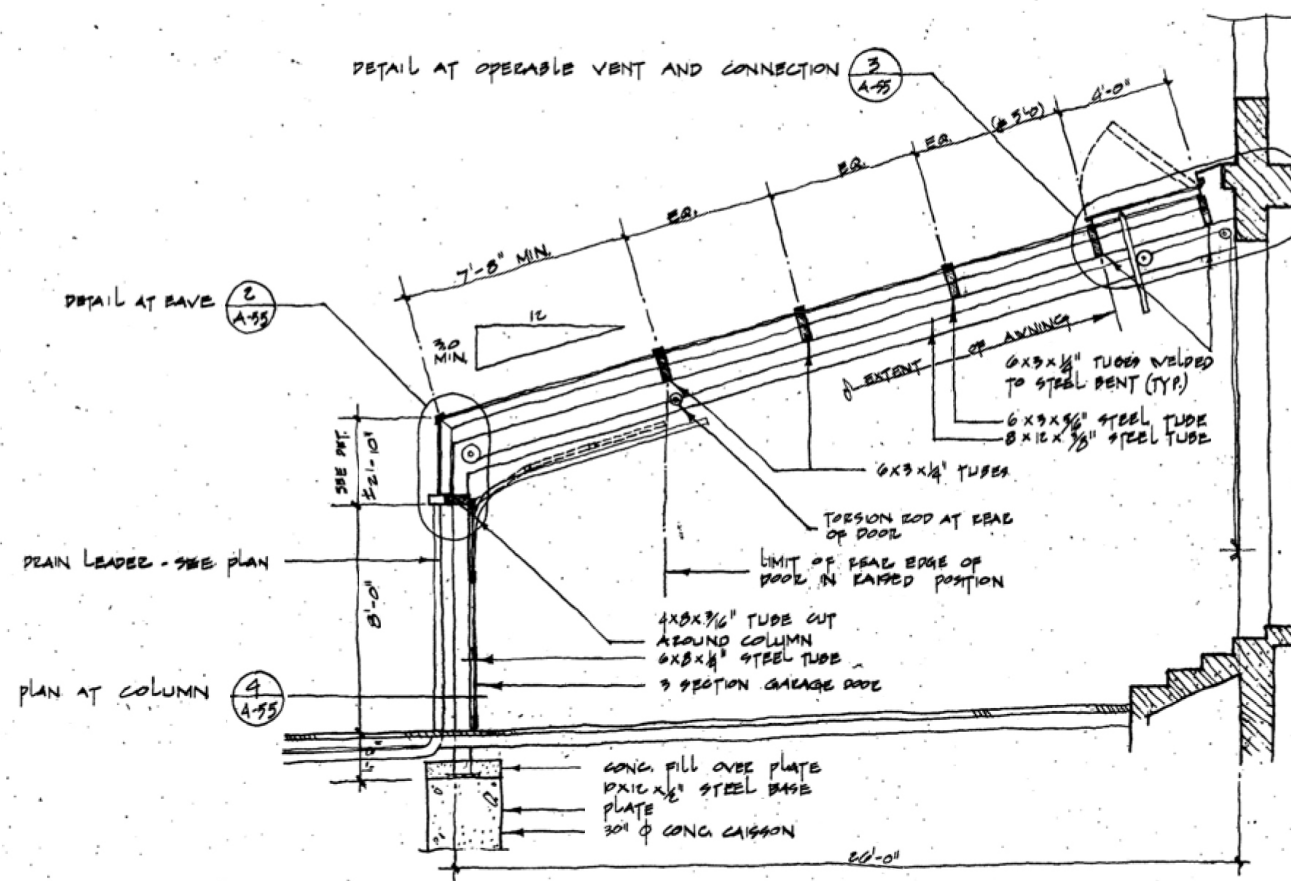 DETAIL AT OPERABLE VENT AND CONNECTION
3
A-55
4'-0"
EQ.
EQ.
EQ.
7'-8" MIN.
DETAIL AT EAVE
2
A-55
12
3.0
MIN.
EXTENT OF AWNING
6x3x1/4" TUBES WELDED
TO STEEL BENT (TYP.)
6x3x3/16" STEEL TUBE
8x12x3/8" STEEL TUBE
6x3x1/4" TUBES
SEE DET.
±2'-10"
TORSION ROD AT REAR
OF DOOR
DRAIN LEADER - SEE PLAN
LIMIT OF REAR EDGE OF
DOOR IN RAISED POSITION
8'-0"
4x8x3/16" TUBE CUT
AROUND COLUMN
6x8x1/4" STEEL TUBE
3 SECTION GARAGE DOOR
PLAN AT COLUMN
4
A-55
CONC. FILL OVER PLATE
10x12x1/2" STEEL BASE
PLATE
30" φ CONC. CAISSON
26'-0"